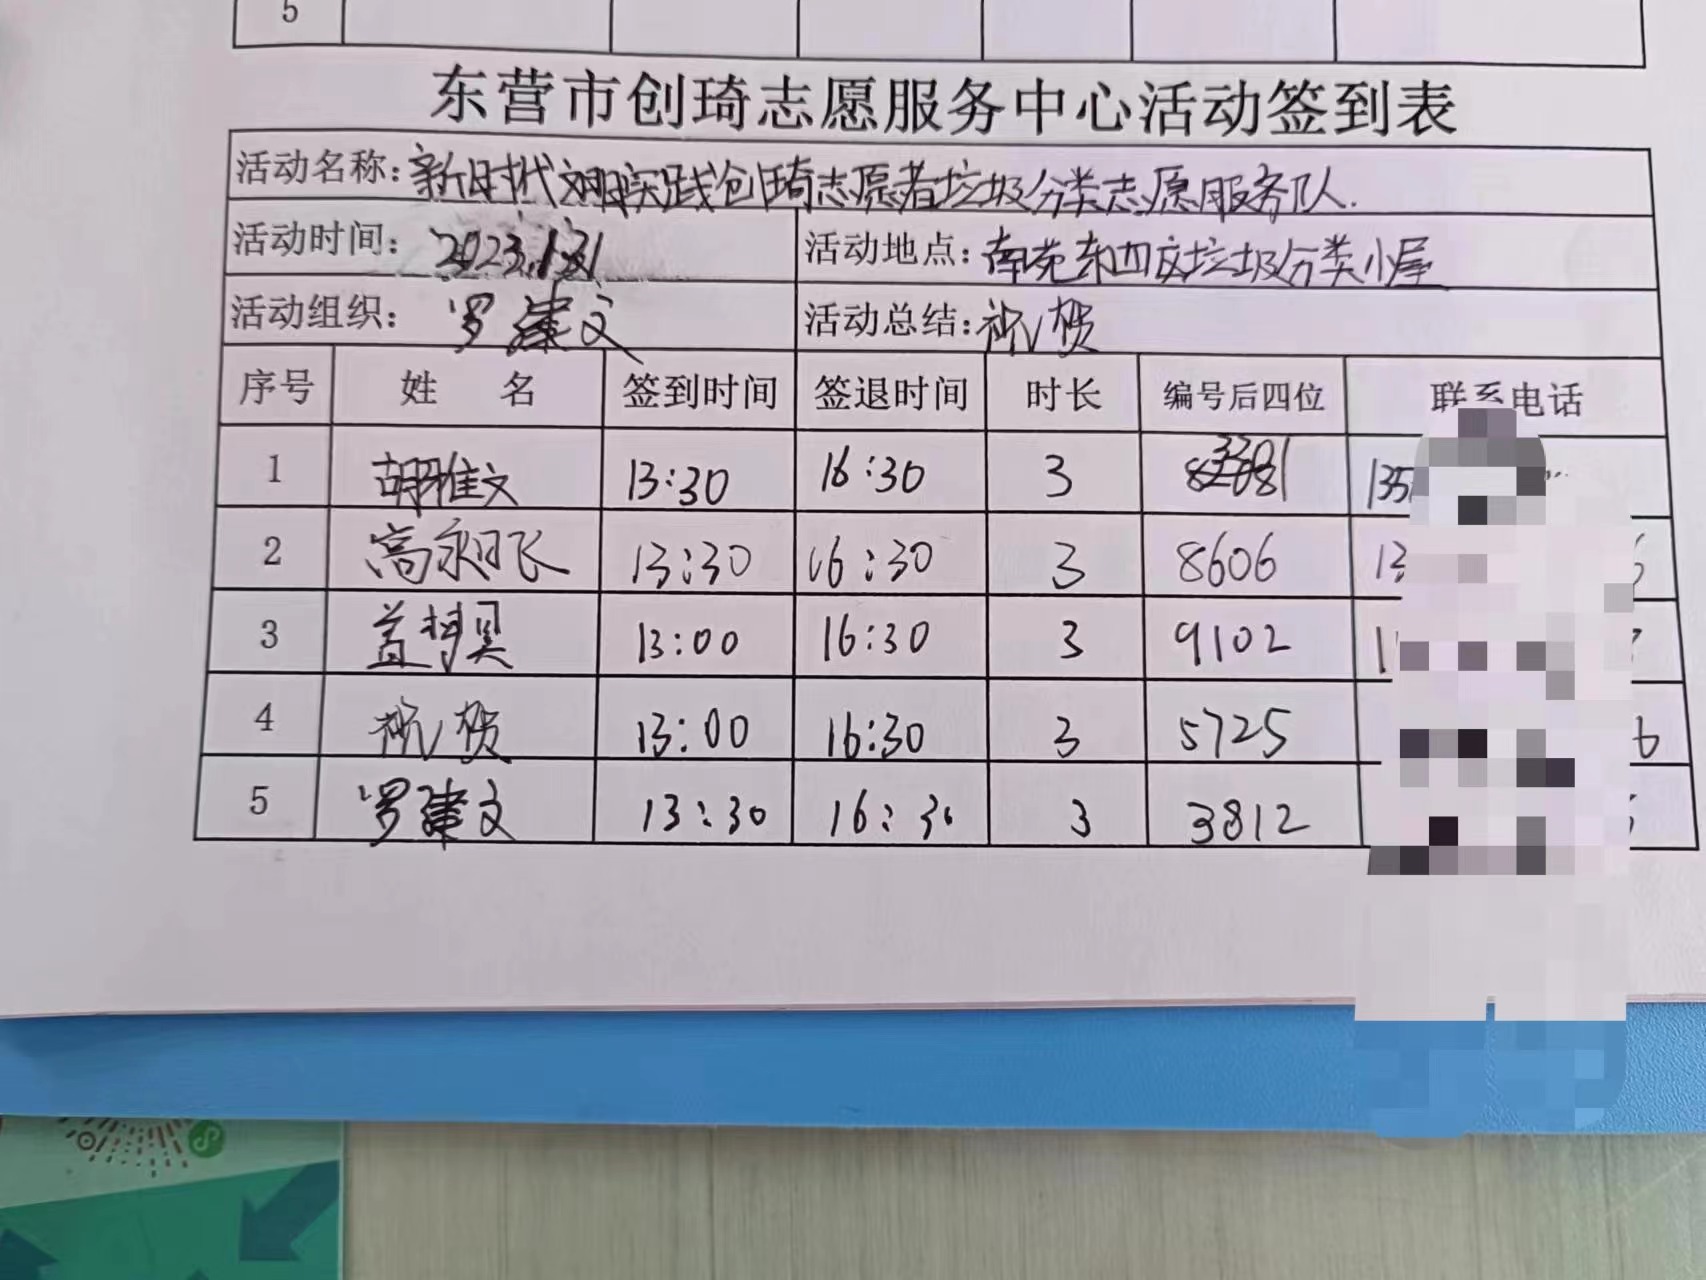 5
东营市创琦志愿服务中心活动签到表
活动名称：新时代文明实践创琦志愿者垃圾分类志愿服务队.
活动时间： 2023.1.31 活动地点：南苑东四区垃圾分类小屋
活动组织： 罗建文 活动总结：祝贺
序号 姓 名 签到时间 签退时间 时长 编号后四位 联系电话
1 胡雅文 13:30 16:30 3 135
2 高永飞 13:30 16:30 3 8606 13 6
3 13:00 16:30 3 9102 1
4 祝贺 13:00 16:30 3 5725 6
5 罗建文 13:30 16:30 3 3812